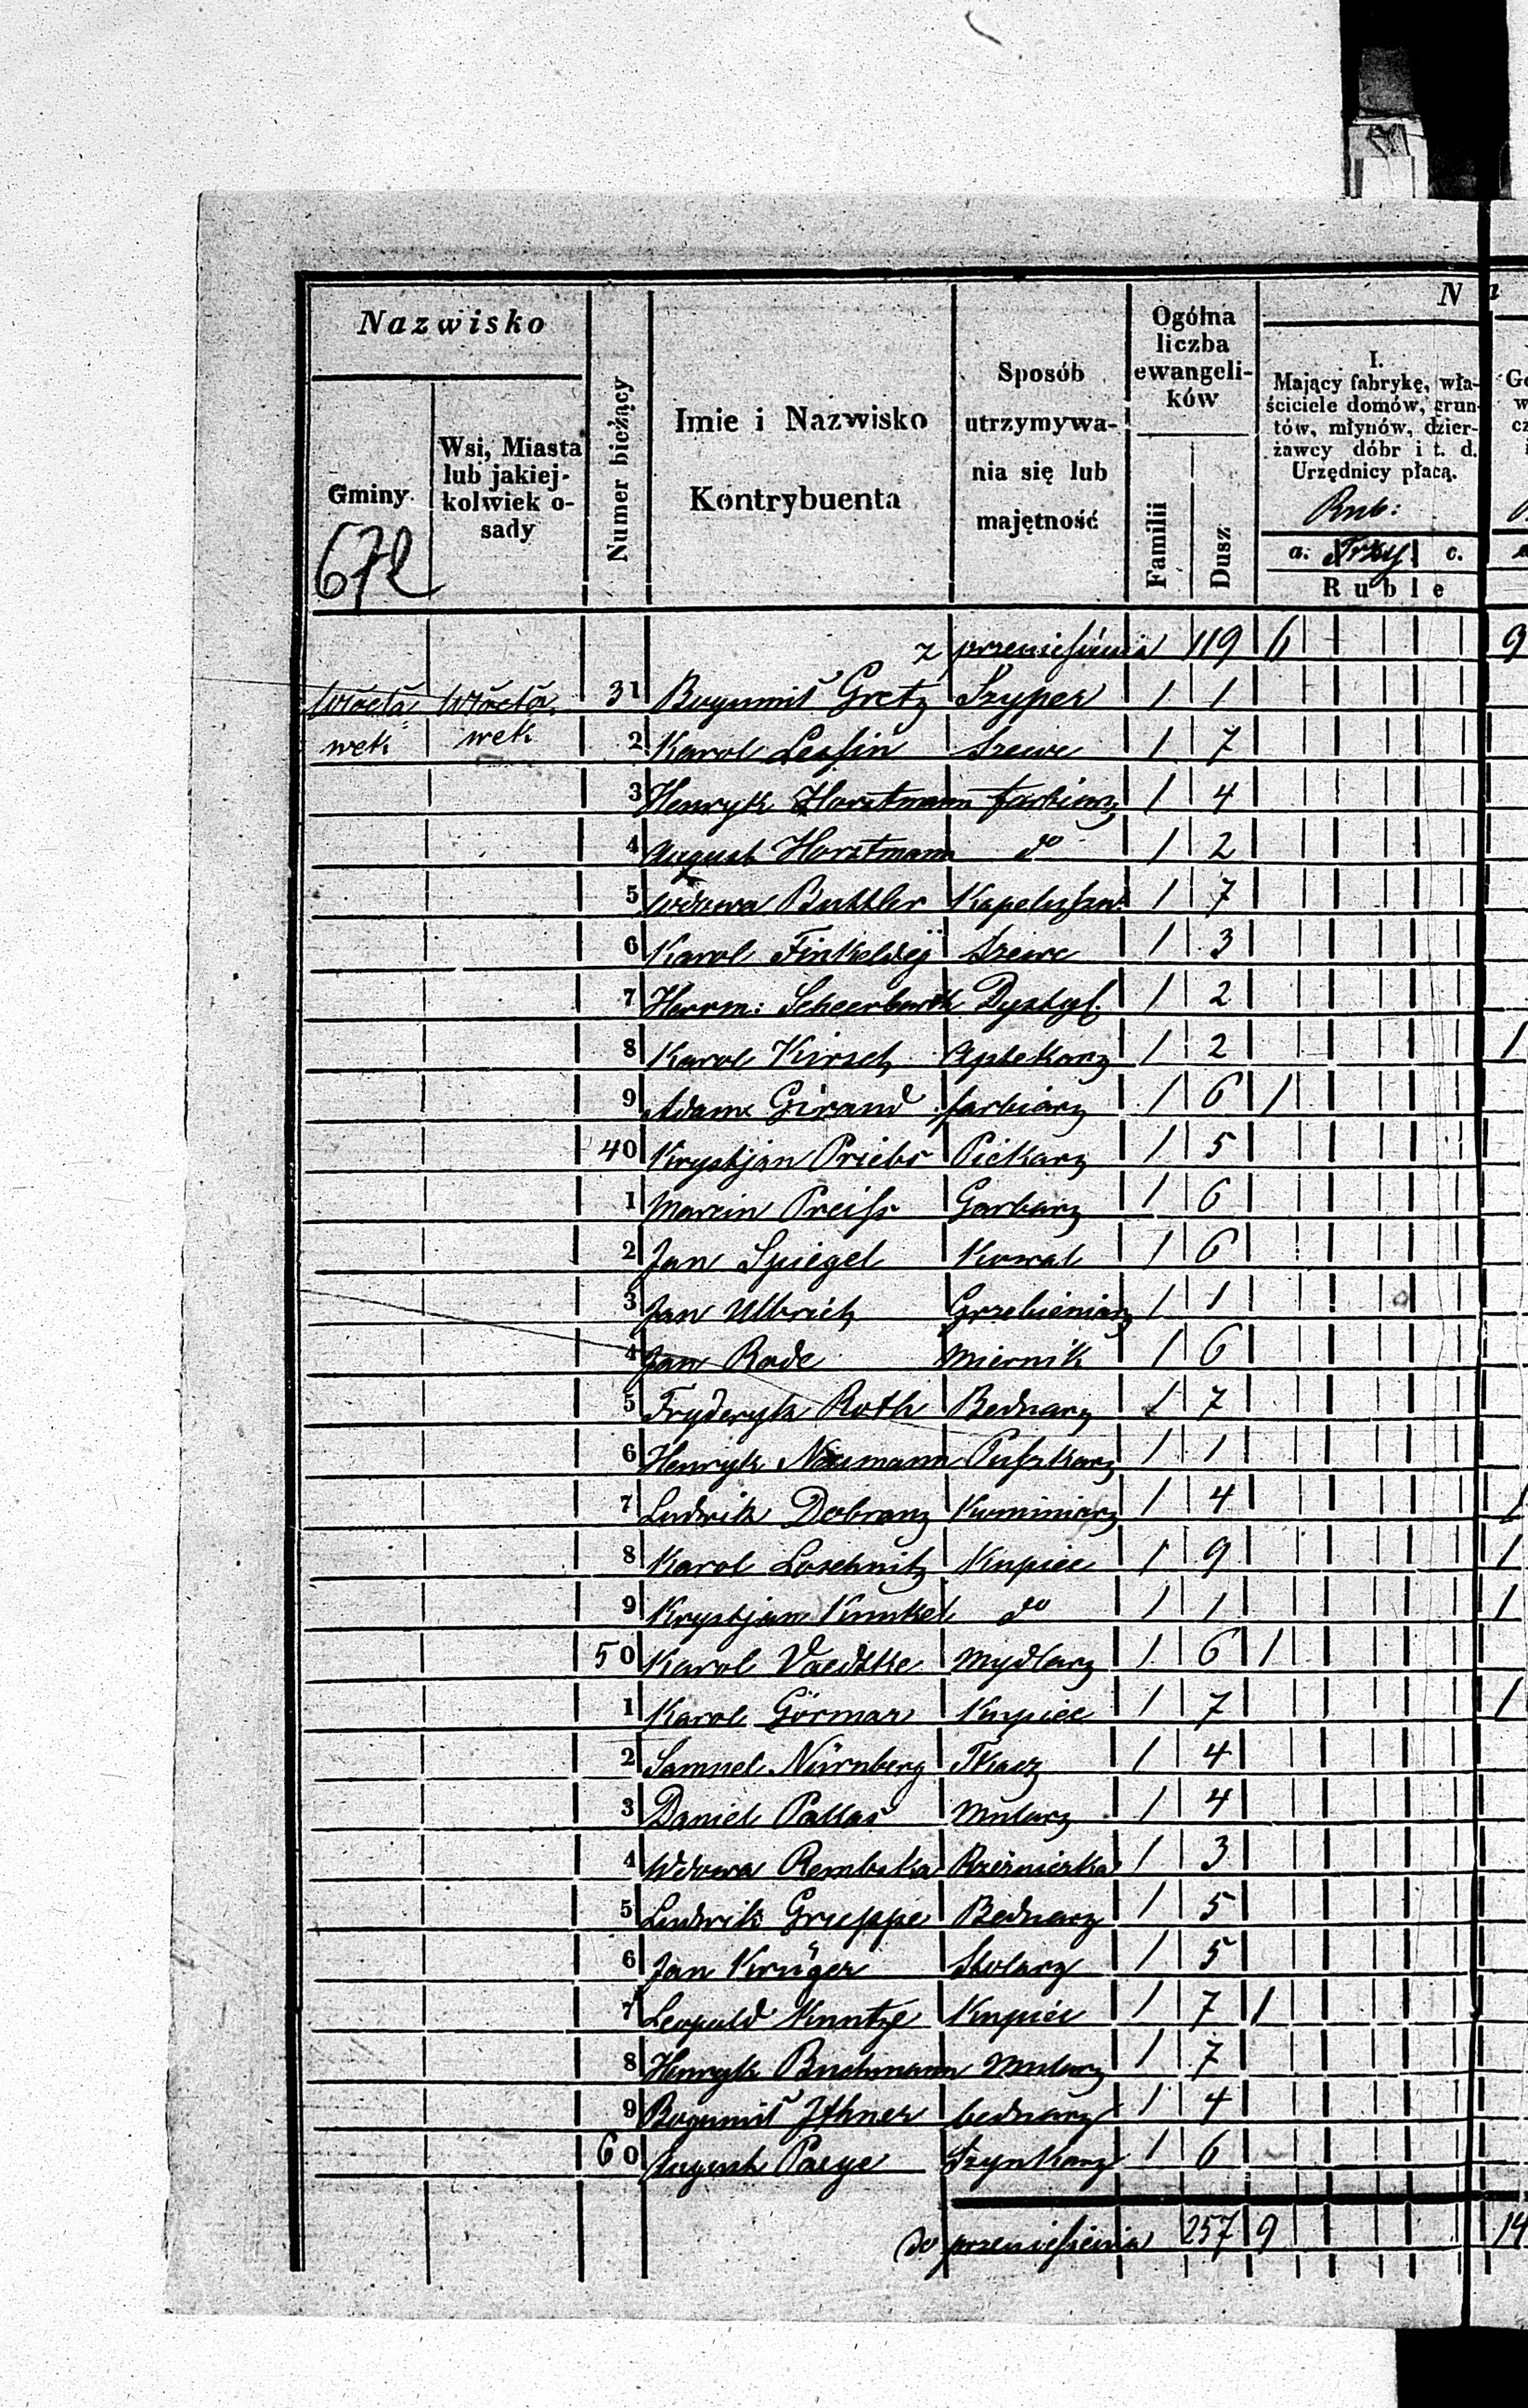 Nazwisko
Gminy
Wsi, Miasta
lub jakiej-
kolwiek o-
sady
Numer bieżący
Imie i Nazwisko
Kontrybuenta
Sposób
utrzymywa-
nia się lub
majętność
Ogólna
liczba
ewangeli-
ków
Familii
Dusz
N
I.
Mający fabrykę, wła-
ściciele domów, grun-
tów, młynów, dzier-
żawcy dóbr i t. d.
Urzędnicy płacą.
Rub:
a. Trzy c.
Ruble
672
z przeniesienia 119 6 9
Włocła Włocła 31 Bogumił Gretz Szyper 1 1
wek wek 2 Karol Lessin Szewc 1 7
3 Henryk Horstmann farbiarz 1 4
4 August Horstmann do 1 2
5 Wdowa Buttler 1 7
6 Karol Szewc 1 3
7 Herrm: Scheerbarth Dystyl. 1 2
8 Karol Kirsch Aptekarz 1 2 1
9 Adam Girand farbiarz 1 6 1
40 Krystjan Priebs Piekarz 1 5
1 Marcin Preiss Garbarz 1 6
2 Jan Spiegel Kowal 1 6
3 Jan Ulbrich Grzebieniarz 1 1
4 Jan Rode Miernik 1 6
5 Fryderyk Roth Bednarz 1 7
6 Henryk Neumann Puszkarz 1 1
7 Ludwik Dobranz Kominiarz 1 4 1
8 Karol Loschnitz Kupiec 1 9 1
9 Krystjan Kunkel do 1 1 1
50 Karol Vaedtke Mydlarz 1 6 1
1 Karol Görmar Kupiec 1 7 1
2 Samuel Nürnberg Tkacz 1 4
3 Daniel Pallas Mularz 1 4
4 Wdowa Rembska Rzeźniczka 1 3
5 Ludwik Grueppe Bednarz 1 5
6 Jan Krüger Stolarz 1 5
7 Leopold Knntze Kupiec 1 7 1
8 Henryk Buchmann Mularz 1 7
9 Bogumił Ithner bednarz 1 4
60 August Paege Szynkarz 1 6
do przeniesienia 257 9 14